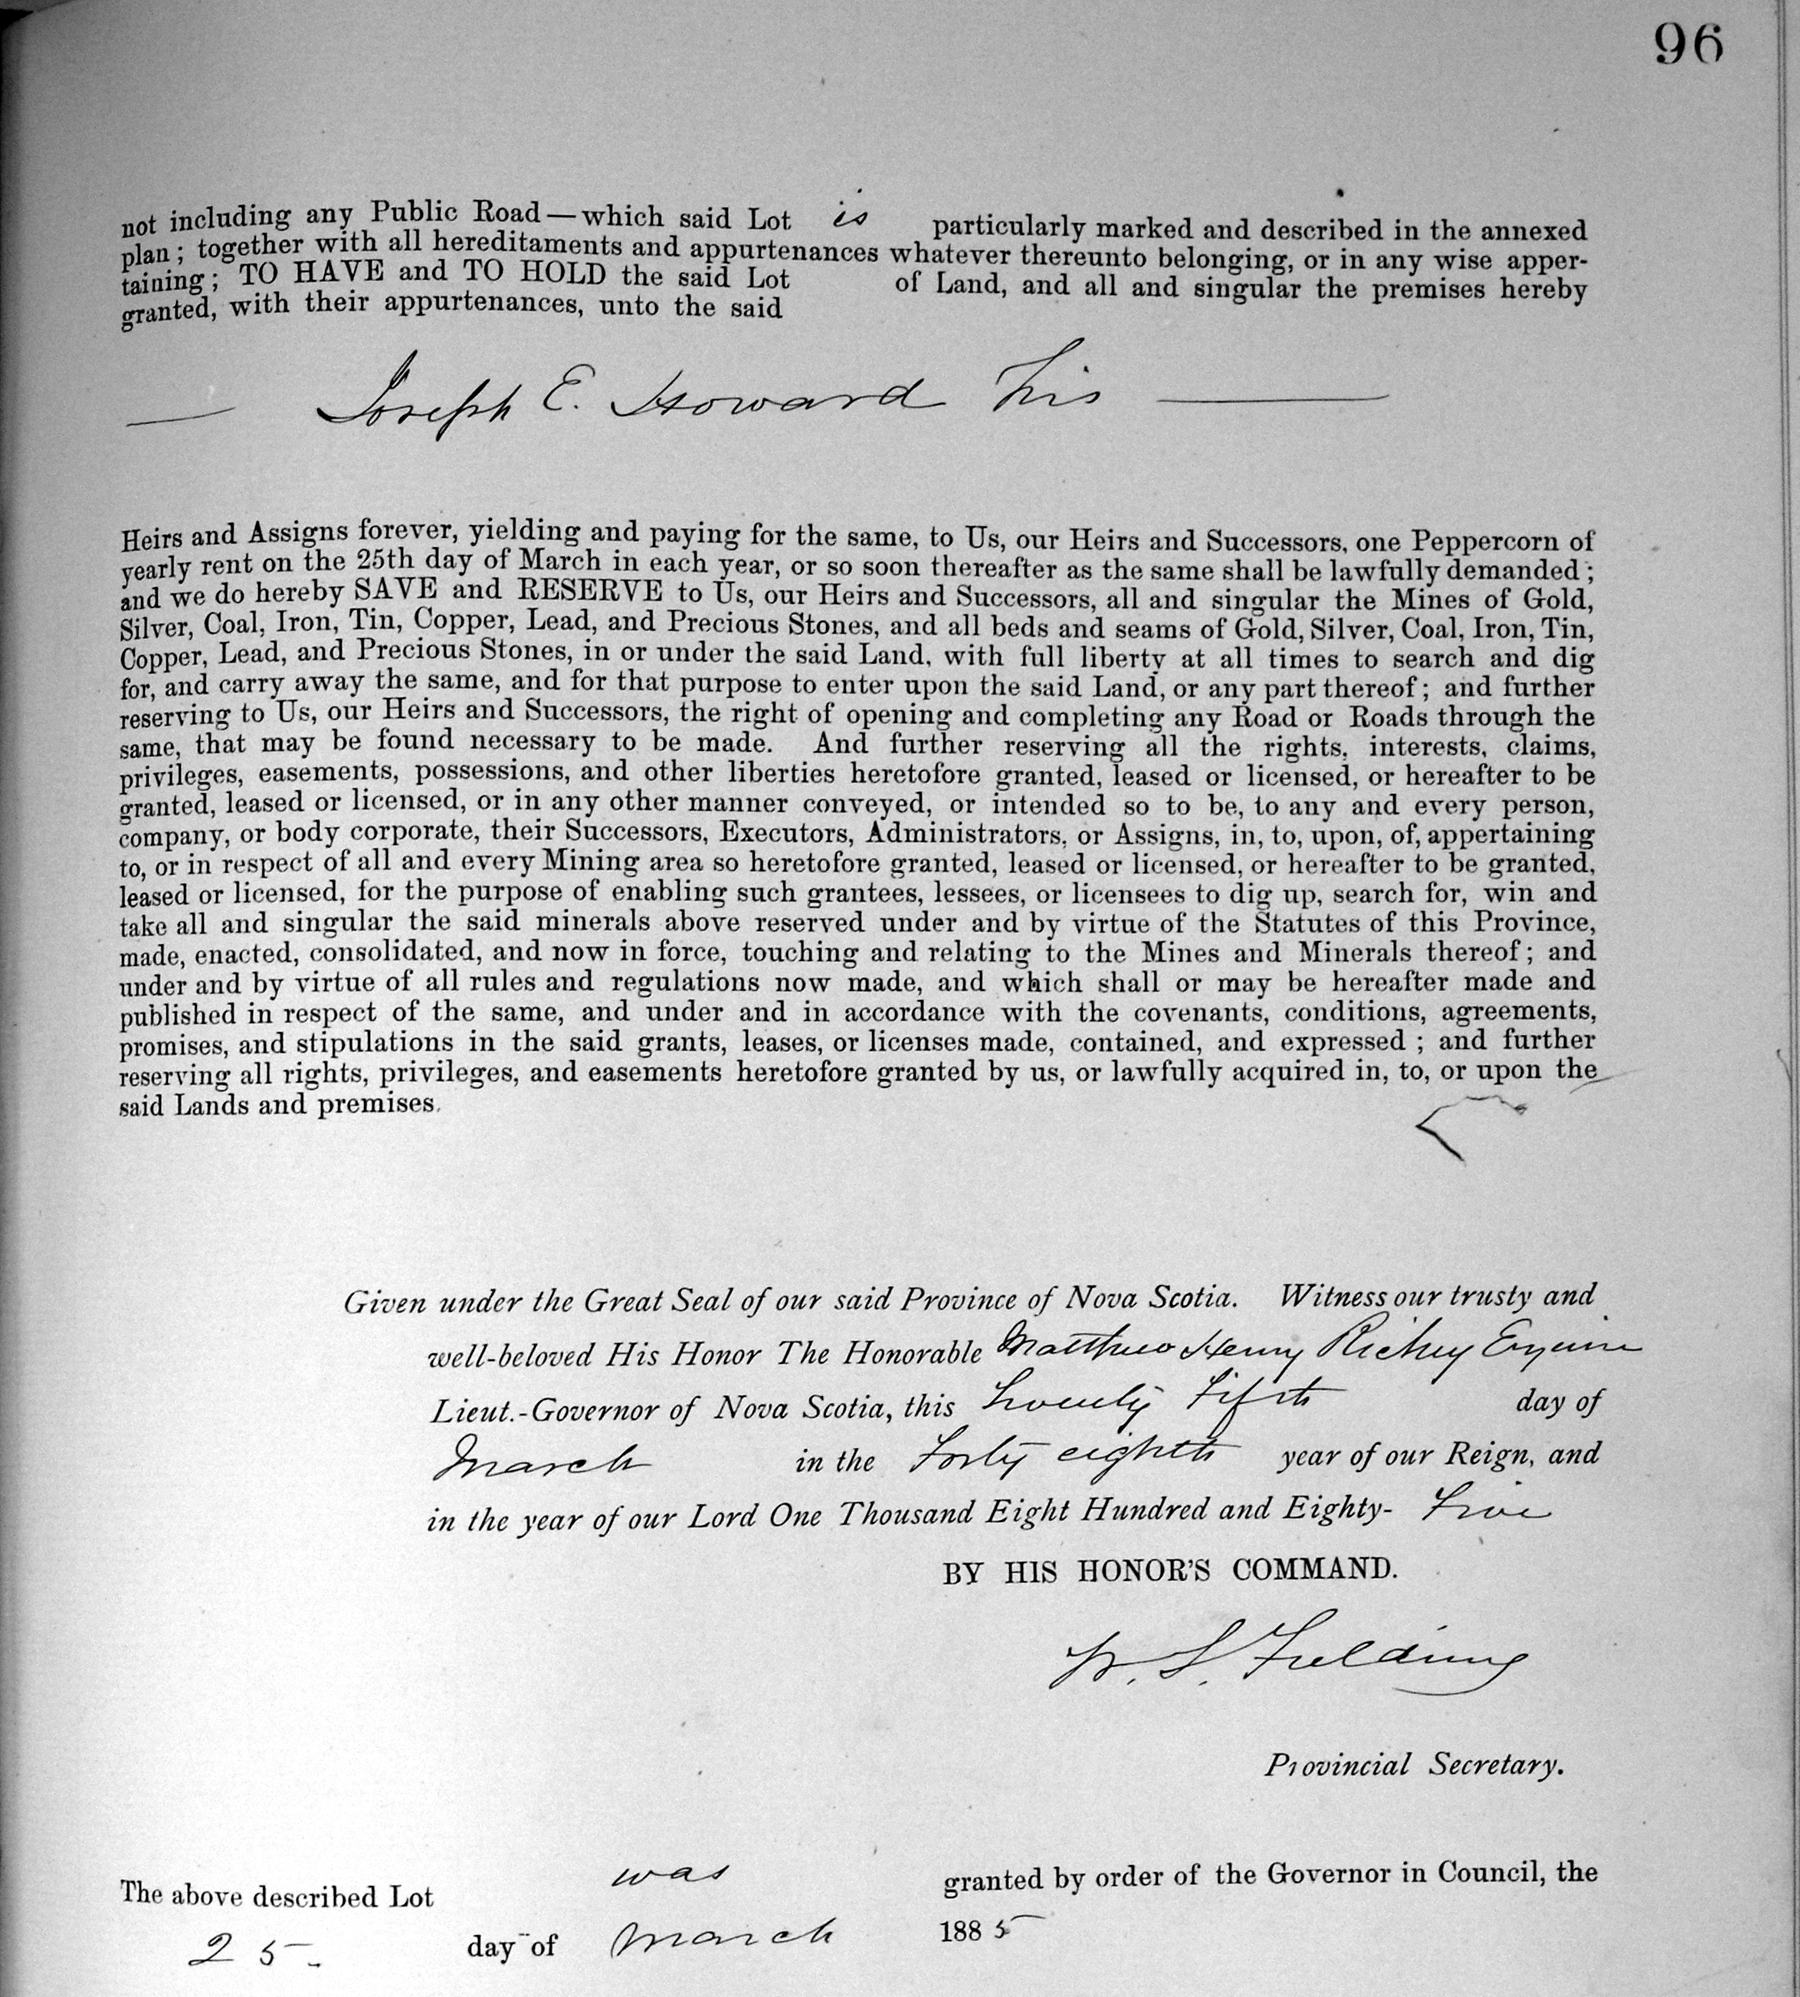 96
not including any Public Road—which said Lot is particularly marked and described in the annexed
plan; together with all hereditaments and appurtenances whatever thereunto belonging, or in any wise apper-
taining; TO HAVE and TO HOLD the said Lot of Land, and all and singular the premises hereby
granted, with their appurtenances, unto the said
— Joseph E. Howard his —
Heirs and Assigns forever, yielding and paying for the same, to Us, our Heirs and Successors, one Peppercorn of
yearly rent on the 25th day of March in each year, or so soon thereafter as the same shall be lawfully demanded;
and we do hereby SAVE and RESERVE to Us, our Heirs and Successors, all and singular the Mines of Gold,
Silver, Coal, Iron, Tin, Copper, Lead, and Precious Stones, and all beds and seams of Gold, Silver, Coal, Iron, Tin,
Copper, Lead, and Precious Stones, in or under the said Land, with full liberty at all times to search and dig
for, and carry away the same, and for that purpose to enter upon the said Land, or any part thereof; and further
reserving to Us, our Heirs and Successors, the right of opening and completing any Road or Roads through the
same, that may be found necessary to be made. And further reserving all the rights, interests, claims,
privileges, easements, possessions, and other liberties heretofore granted, leased or licensed, or hereafter to be
granted, leased or licensed, or in any other manner conveyed, or intended so to be, to any and every person,
company, or body corporate, their Successors, Executors, Administrators, or Assigns, in, to, upon, of, appertaining
to, or in respect of all and every Mining area so heretofore granted, leased or licensed, or hereafter to be granted,
leased or licensed, for the purpose of enabling such grantees, lessees, or licensees to dig up, search for, win and
take all and singular the said minerals above reserved under and by virtue of the Statutes of this Province,
made, enacted, consolidated, and now in force, touching and relating to the Mines and Minerals thereof; and
under and by virtue of all rules and regulations now made, and which shall or may be hereafter made and
published in respect of the same, and under and in accordance with the covenants, conditions, agreements,
promises, and stipulations in the said grants, leases, or licenses made, contained, and expressed; and further
reserving all rights, privileges, and easements heretofore granted by us, or lawfully acquired in, to, or upon the
said Lands and premises.
Given under the Great Seal of our said Province of Nova Scotia. Witness our trusty and
well-beloved His Honor The Honorable Matthew Henry Richey Esquire
Lieut.-Governor of Nova Scotia, this Twenty Fifth day of
March in the Forty eighth year of our Reign, and
in the year of our Lord One Thousand Eight Hundred and Eighty- Five
BY HIS HONOR'S COMMAND.
W. S. Fielding
Provincial Secretary.
The above described Lot was granted by order of the Governor in Council, the
25. day of March 1885